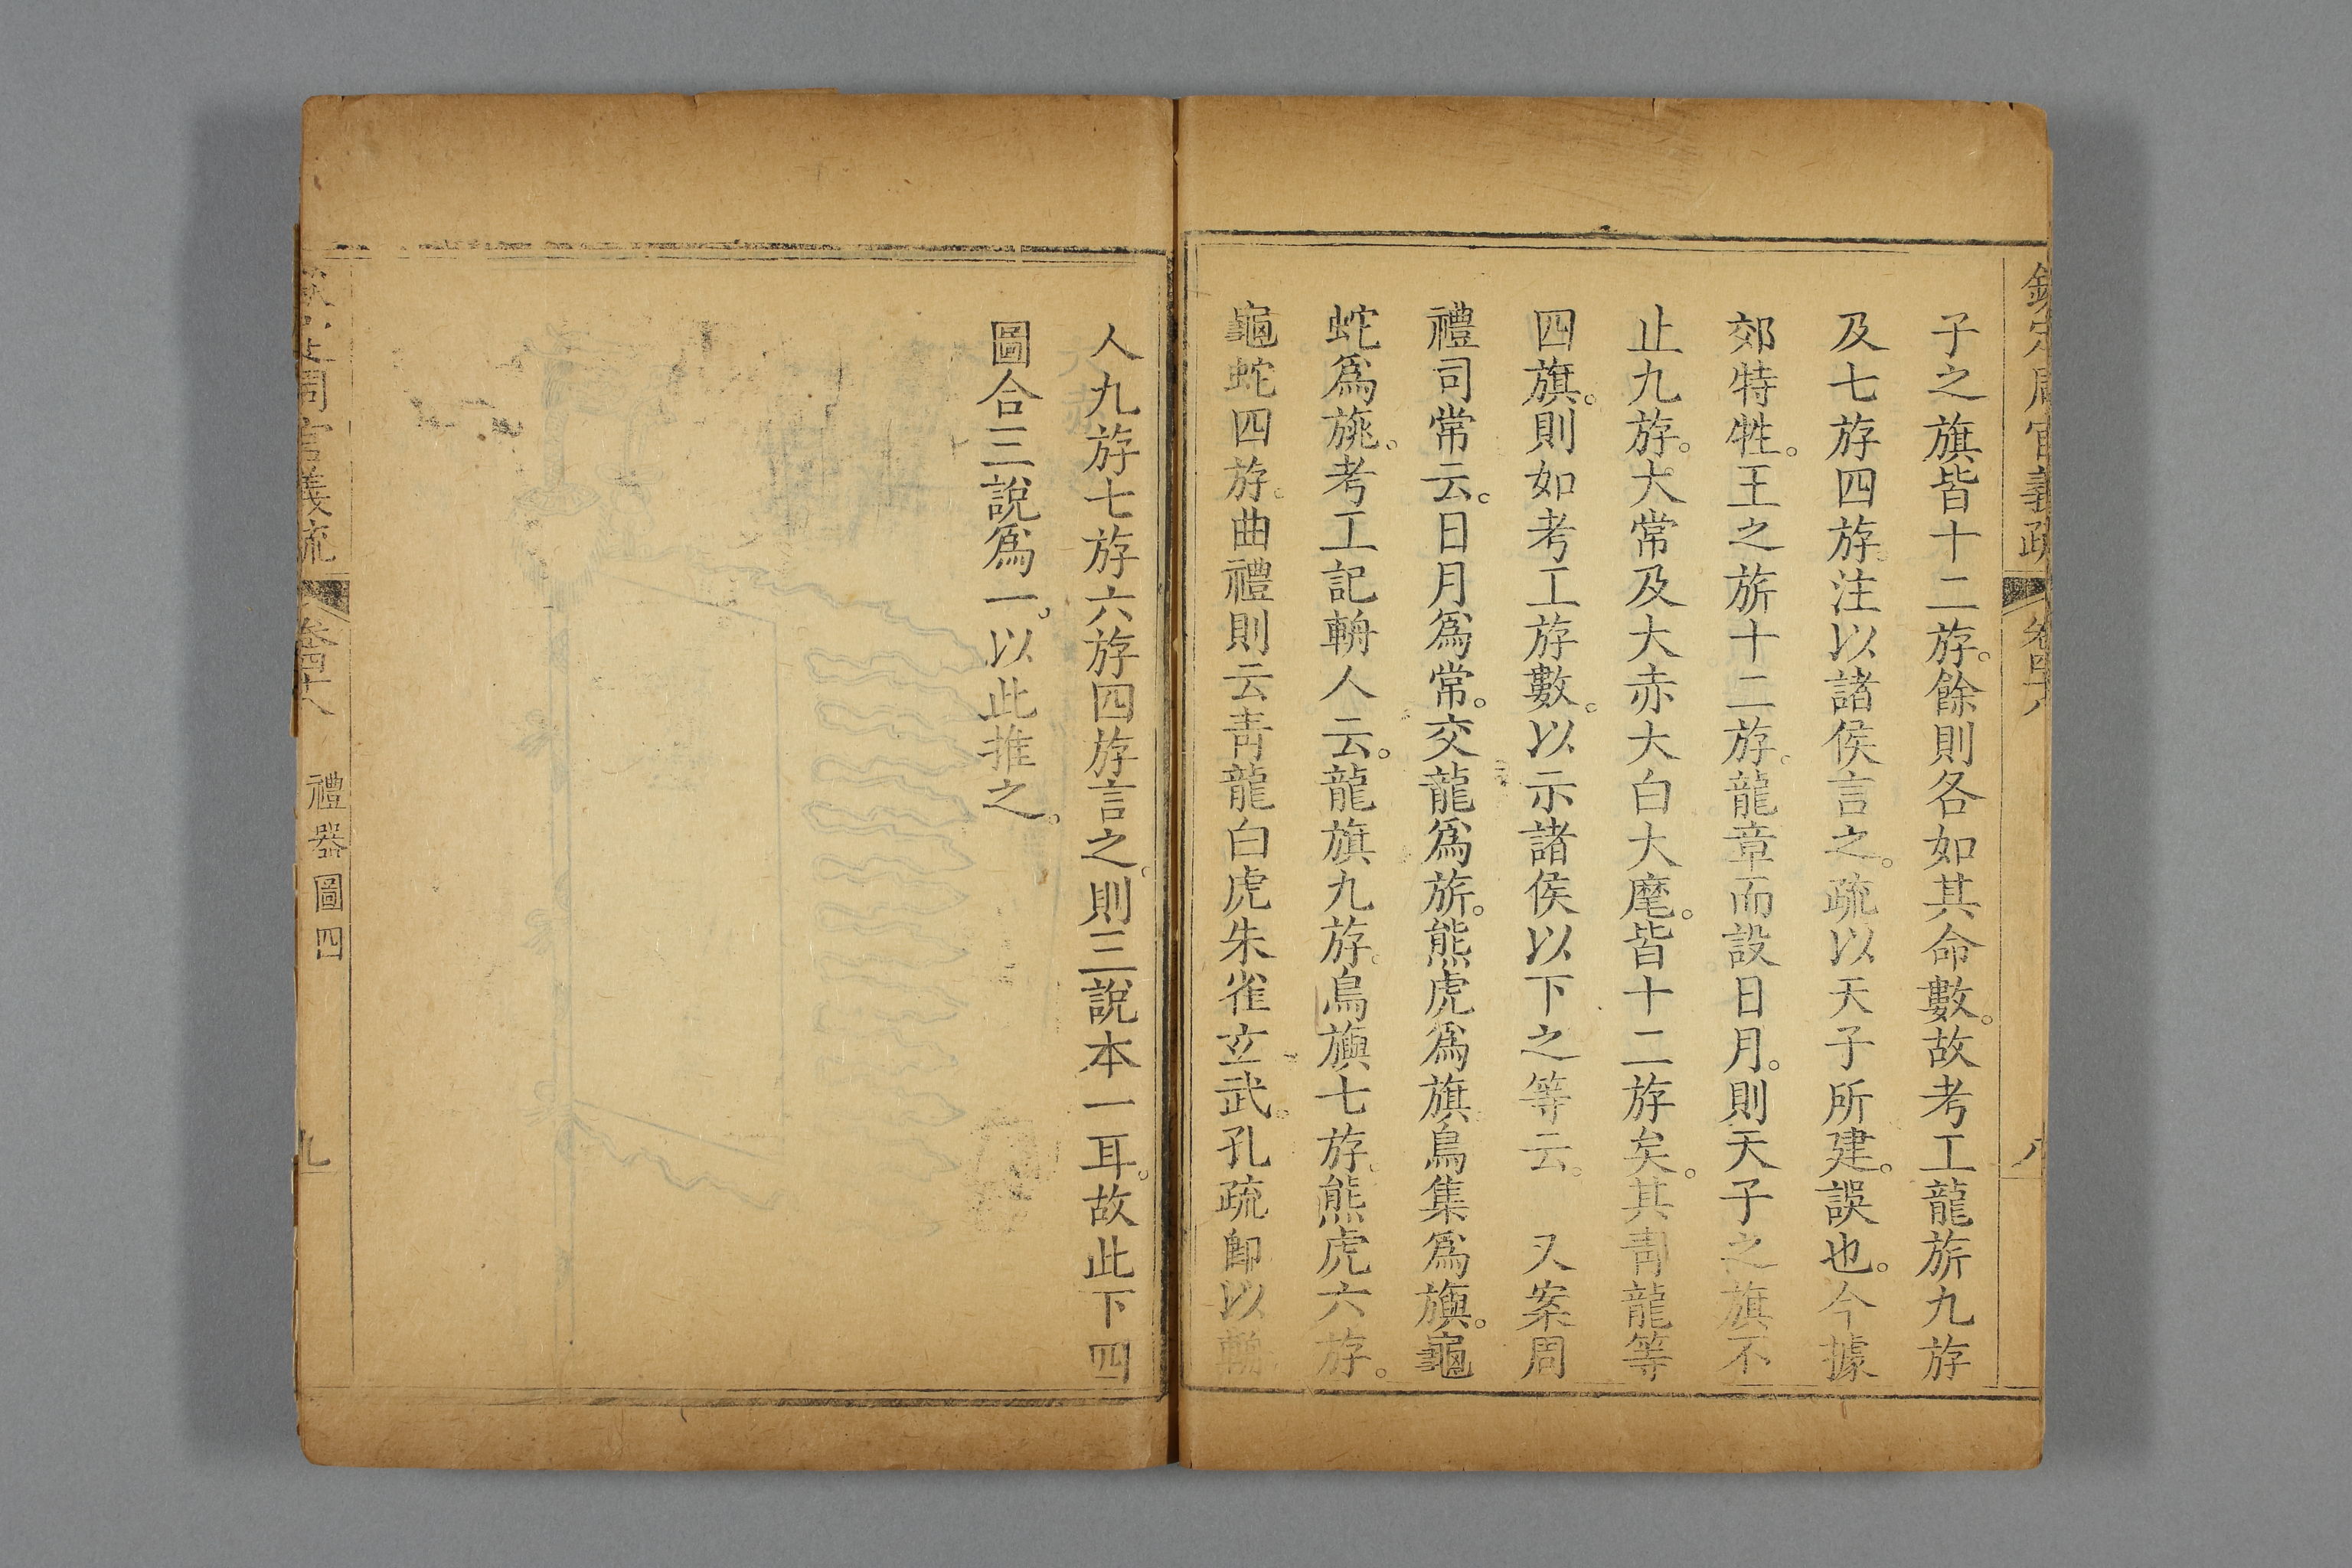 欽定周官義疏 卷四十八 八
子之旗皆十二斿。餘則各如其命數。故考工龍旂九斿
及七斿四斿。注以諸侯言之。疏以天子所建。誤也。今據
郊特牲。王之旂十二斿。龍章而設日月。則天子之旗不
止九斿。大常及大赤大白大麾。皆十二斿矣。其靑龍等
四旗。則如考工斿數。以示諸侯以下之等云。 又案周
禮司常云。日月爲常。交龍爲旂。熊虎爲旗。鳥集爲旟。龜
蛇爲旐。考工記輈人云。龍旗九斿。鳥旟七斿。熊虎六斿。
龜蛇四斿。曲禮則云靑龍白虎朱雀玄武。孔疏卽以輈
人九斿七斿六斿四斿言之。則三說本一耳。故此下四
圖合三說爲一。以此推之。
周官義疏 卷四十八 禮器圖四 九